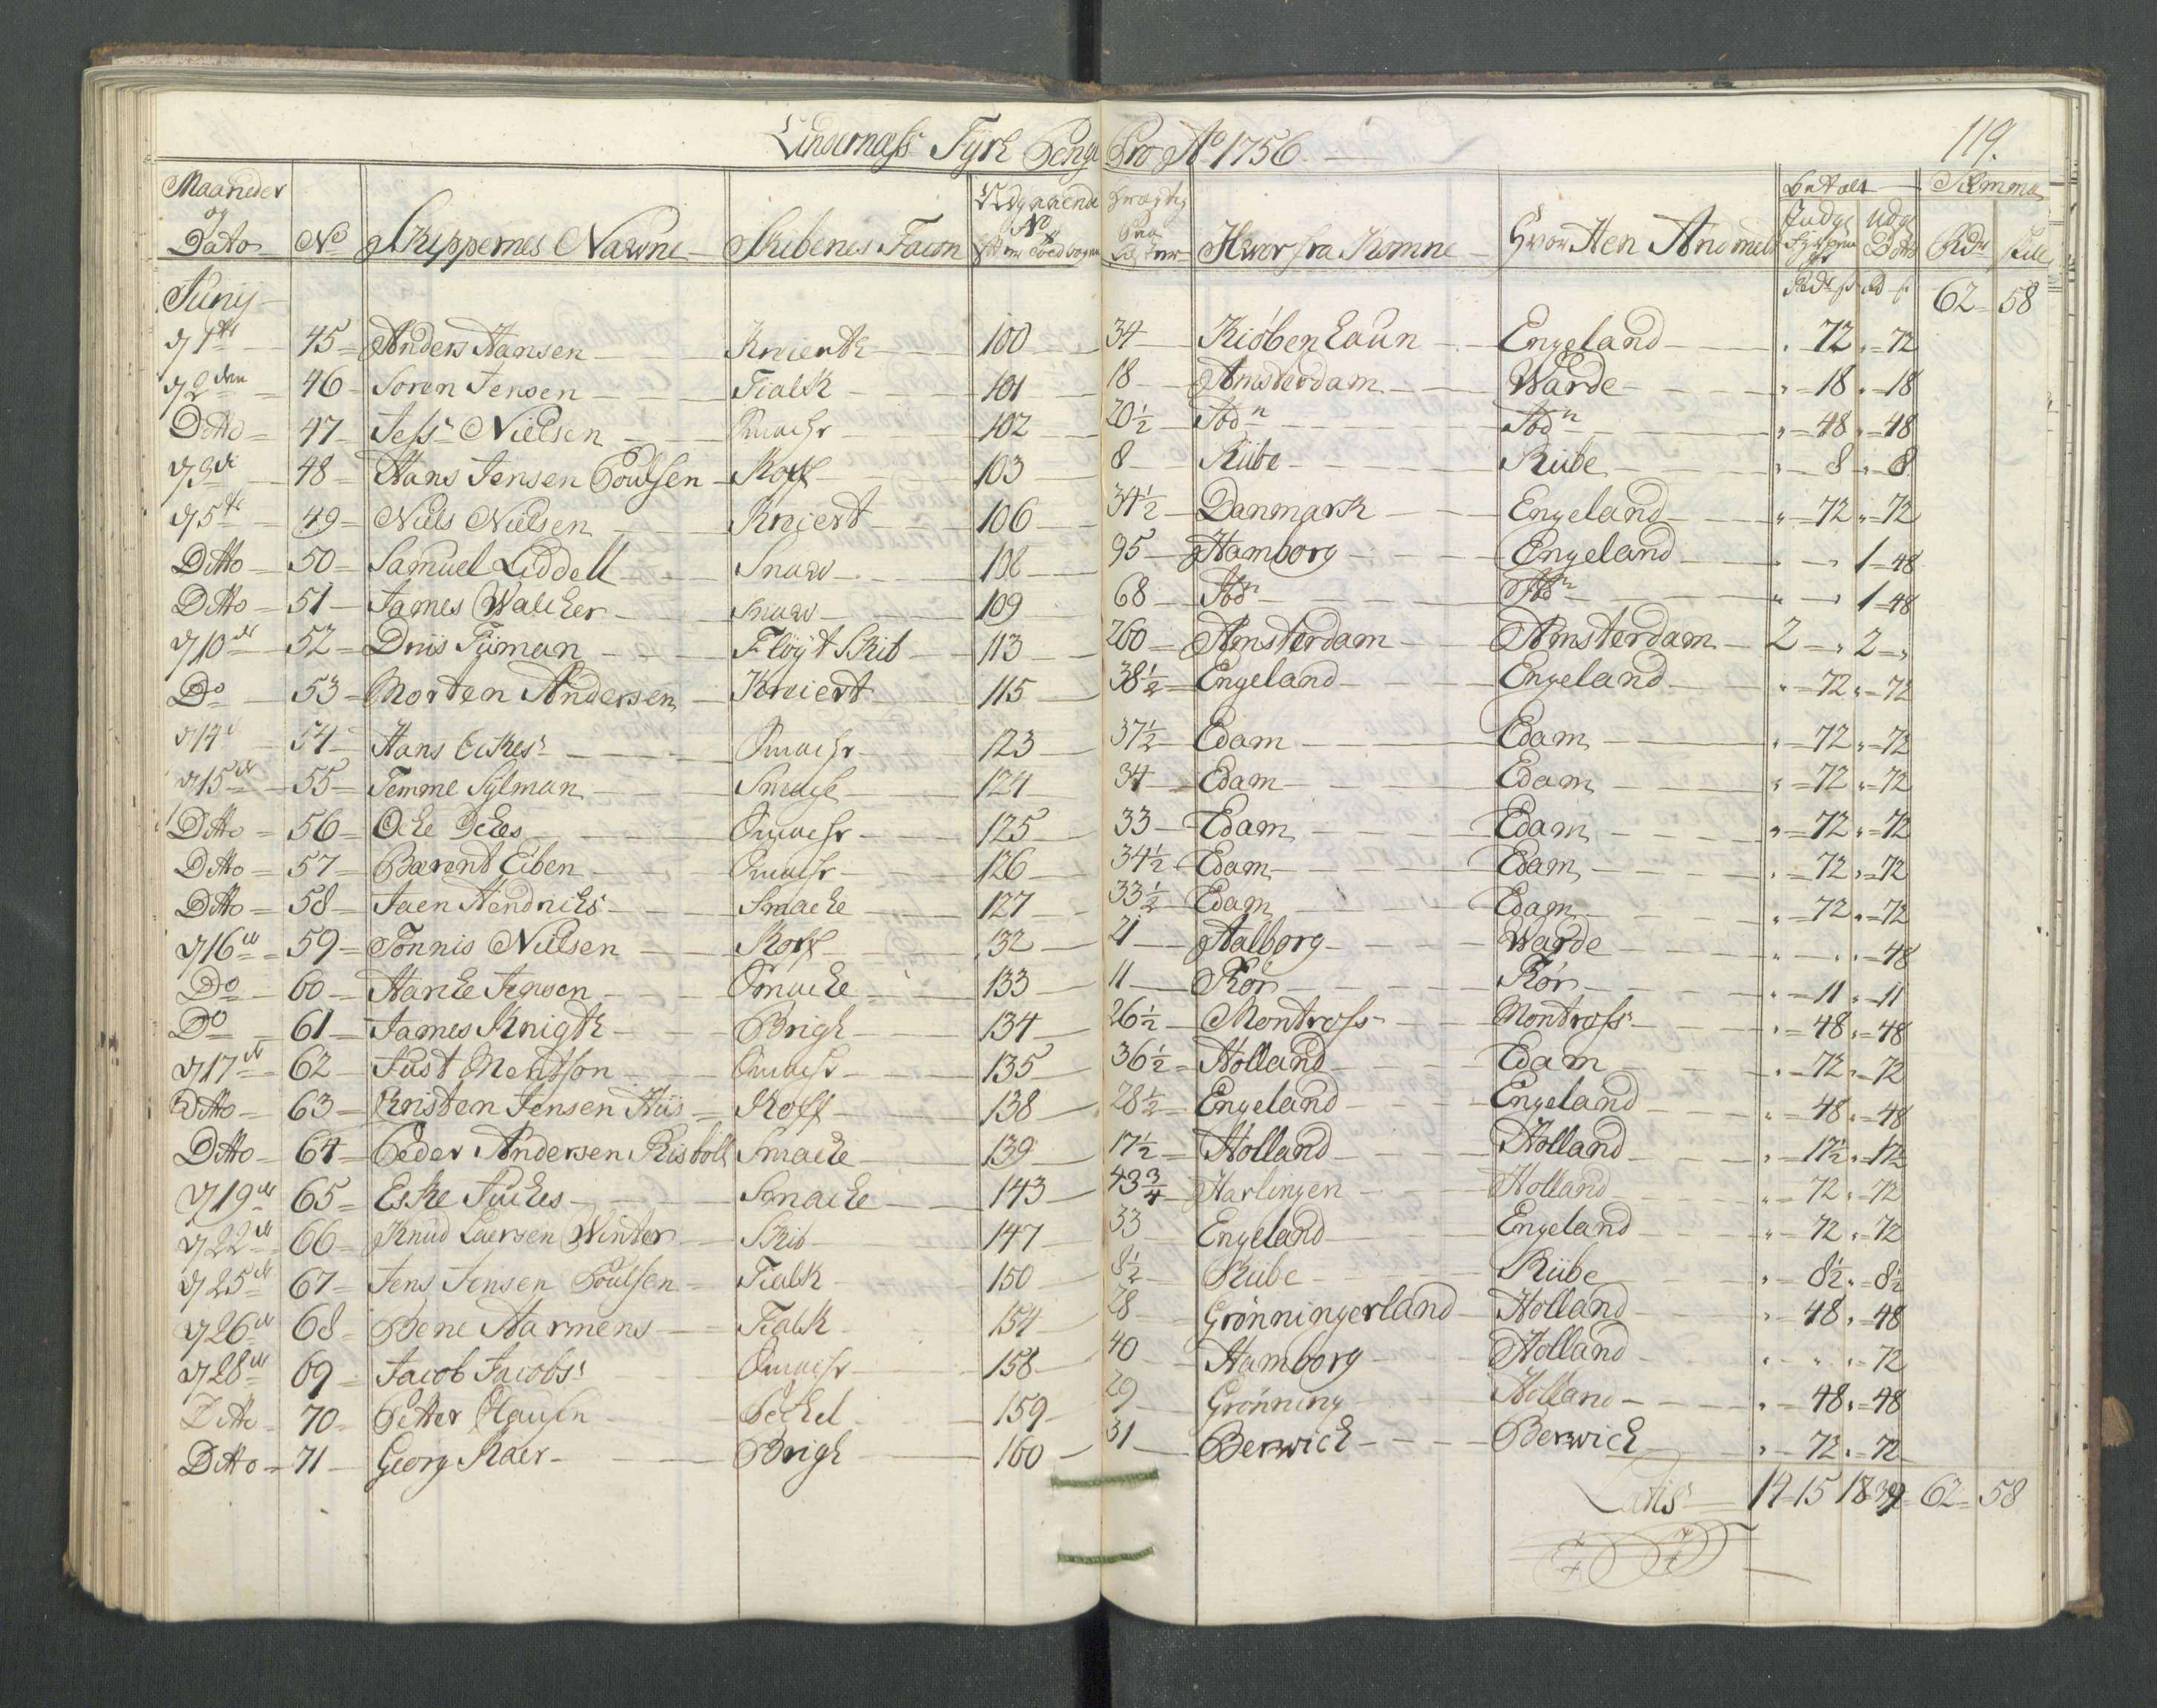 Lindernæss Fyhr Penge Pro Ao 1756
119.
Maaneder og Dato No Skippernes Nawne Skibenes Facon Udgaaende No Hvor fra Komne Hvor Hen Betalt Summa
Rdr Skill
Junij 62 58
d 1te 45 Anders Hansen Kreierth 100 34 Kiöbenhaun Engeland 72 72
d 2den 46 Soren Jensen Tialk 101 18 Amsterdam Warde 18 18
Ditto 47 Jess Nielsen Smach 102 20½ Ibdn Ibdn 48 48
d 3di 48 Hans Jensen Poulsen Koff 103 8 Riibe Riibe 8 8
d 5te 49 Niels Nielsen Kreiert 106 34½ Danmark Engeland 72 72
Ditto 50 Samuel Liddell Snaw 108 95 Hamborg Engeland 1 48
Ditto 51 James Walcker Snaw 109 68 Ibdn Ibdn 1 48
d 10de 52 Driis Tijman Fløyt Skib 113 260 Amsterdam Amsterdam 2 2
Do 53 Morten Andersen Kreiert 115 38½ Engeland Engeland 72 72
d 14 54 Hans Eskes Smach 123 37½ Edam Edam 72 72
d 15de 55 Temme Sylman Smach 124 34 Edam Edam 72 72
Ditto 56 Ocke Ockes Smach 125 33 Edam Edam 72 72
Ditto 57 Barent Eiben Smach 126 34½ Edam Edam 72 72
Ditto 58 Jaen Hendrichs Smacke 127 33½ Edam Edam 72 72
d 16de 59 Tönnis Nielsen Koff 132 21 Aalborg Warde 48
Do 60 Hancke Jensen Smacke 133 11 Før Før 11 11
Do 61 James Knigth Brigh 134 26½ Montross Montross 48 48
d 17de 62 Just Mentson Smach 135 36½ Holland Edam 72 72
Ditto 63 Kristen Jensen Hiis Koff 138 28½ Engeland Engeland 48 48
Ditto 64 Peder Andersen Risböll Smacke 139 17½ Holland Holland 17½ 17½
d 19de 65 Eske Juckes Smacke 143 43¾ Harlingen Holland 72 72
d 22de 66 Knud Laersen Winter Skib 147 33 Engeland Engeland 72 72
d 25de 67 Jens Jensen Poulsen Tialk 150 8½ Riibe Riibe 8½ 8½
d 26de 68 Bene Harmens Tialk 154 28 Grönningerland Holland 48 48
d 28de 69 Jacob Jacobs Smach 158 40 Hamborg Holland 72
Ditto 70 Petter Clausen 159 29 Grönning Holland 48 48
Ditto 71 Georg Kaer Brigh 160 31 Berwick Berwick 72 72
Latis 14 15 18 39 62 58